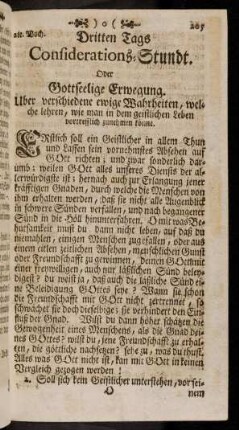 2te. Woch. )o( 209
Dritten Tags
Considerations-Stundt.
Oder
Gottseelige Erwegung.
Uber verschiedene ewige Wahrheiten, wel-
che lehren, wie man in dem geistlichen Leben
vortrefflich zunemen könne.
ERstlich soll ein Geistlicher in allem Thun
und Lassen sein vornehmstes Absehen auf
GOtt richten; und zwar sonderlich dar-
umb: weilen GOtt alles unseres Diensts der al-
lerwürdigiste ist: hernach auch zur Erlangung jener
kräfftigen Gnaden, durch welche die Menschen von
ihm erhalten werden, daß sie nicht alle Augenblick
in schwere Sünden verfallen, und nach begangener
Sünd in die Höll hinunterfahren. O mit was Be-
hutsamkeit must du dann nicht leben, auf daß du
niemahlen, einigen Menschen zugefallen, oder aus
einem eitlen zeitlichen Absehen, menschlichen Gunst
oder Freundschafft zu gewinnen, deinen GOtt mit
einer freywilligen, auch nur läßlichen Sünd beley-
digest? du weist ja, daß auch die läßliche Sünd ei-
ne Beleidigung GOttes seye? Wann sie schon
die Freundschafft mit GOtt nicht zertrennet, so
schwächet sie doch dieselbige; sie verhindert den Ein-
fluß der Gnad. Wilst du dann höher schätzen die
Gewogenheit eines Menschens, als die Gnad dei-
nes GOttes? wilst du, jene Freundschafft zu erhal-
ten, die göttliche nachsetzen? sehe zu, was du thust.
Alles was GOtt nicht ist, kan mit GOtt in keinen
Vergleich gezogen werden!
2. Soll sich kein Geistlicher unterstehen, vor sei-
O nem